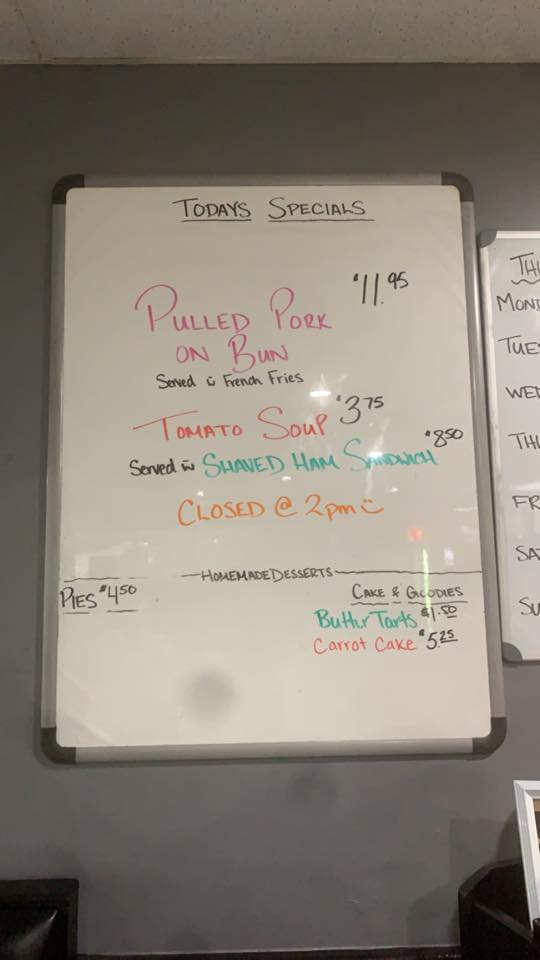 TODAYS SPECIALS
$11.95
PULLED PORK
ON BUN
Served w French Fries
TOMATO SOUP $3.75
Served w SHAVED HAM SANDWICH $8.50
CLOSED @ 2pm
HOMEMADE DESSERTS
PIES $4.50
CAKE & GOODIES
Butter Tarts $1.50
Carrot Cake $5.25
MOND
TUES
WED
FR
SA
SU